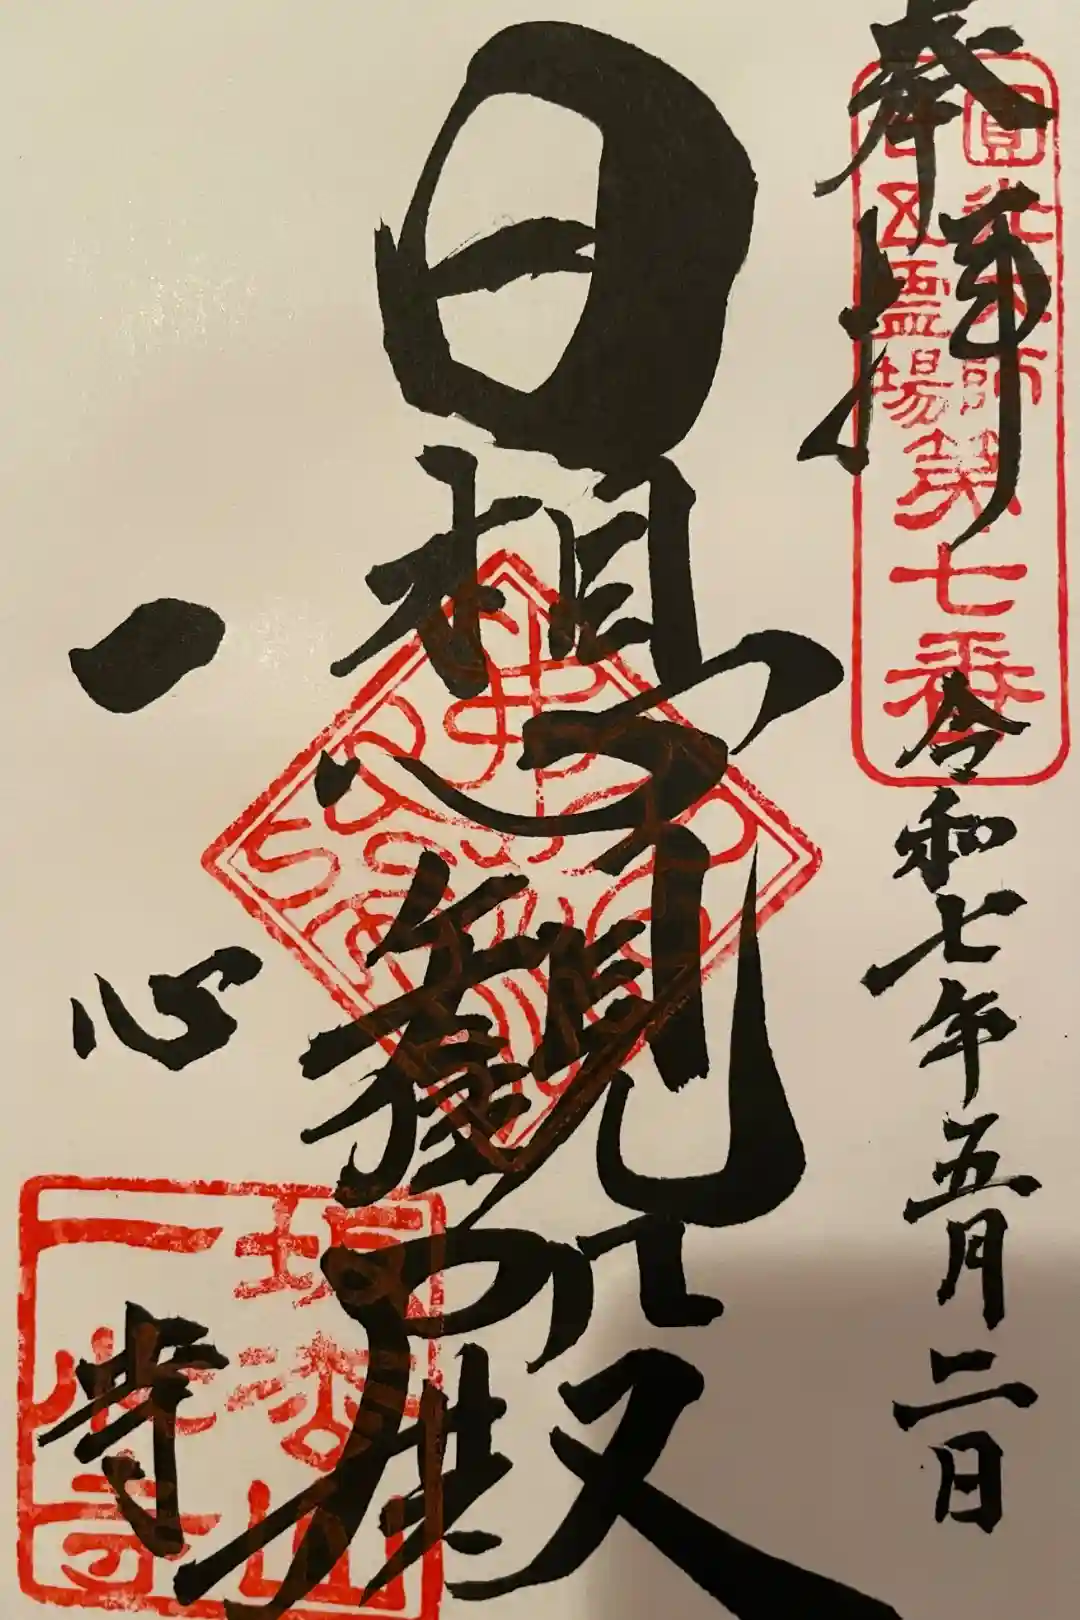 奉拝
圓光大師
廿五霊場
第七番
令和七年五月二日
日想観殿
一心寺
坂松山
一心寺